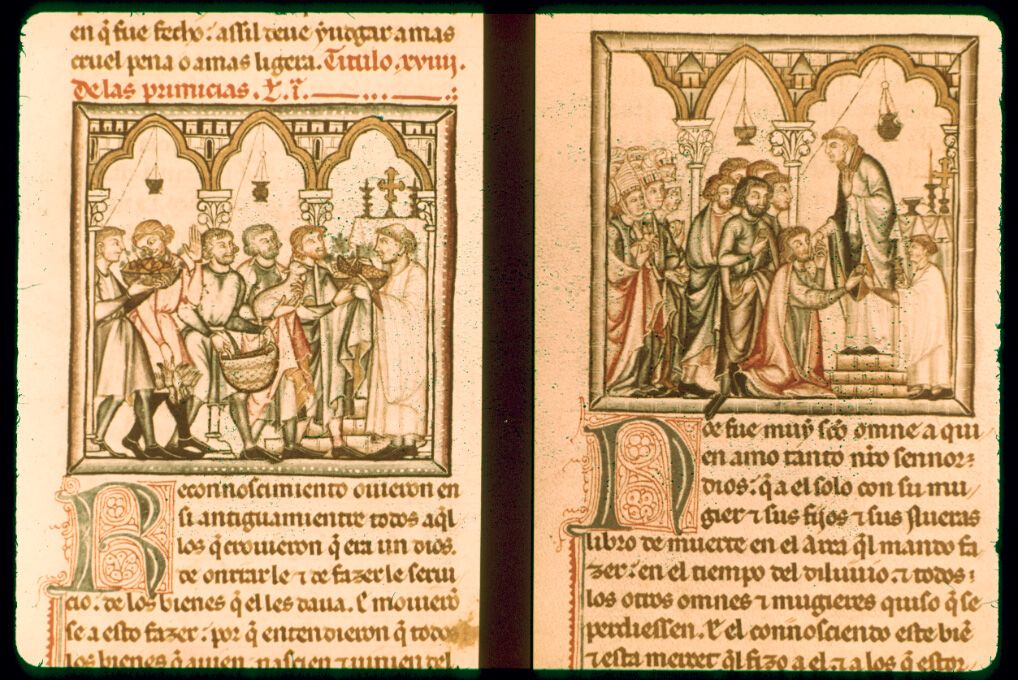 en q̃ fue fecho: assil deue yudgar a mas
cruel pena o a mas ligera. Titulo .xviiij.
De las primicias. L. i.ª
Reconnoscimiento ouieron en
si antiguamientre todos aq̃l
los q̃ crouieron q̃ era un dios.
de onrrarle ⁊ de fazer le serui
cio. de los bienes q̃ el les daua. E mouierõ
se a esto fazer: por q̃ entendieron q̃ todos
los bienes q̃ auien nascien ⁊ uinien del
Noe fue muy scõ omne a qui
en amo tanto nr̃o sennor
dios: q̃ a el solo con su mu
gier ⁊ sus fijos ⁊ sus nueras
libro de muerte en el Arca q̃l mando fa
zer: en el tiempo del diluuio. ⁊ todos
los otros omnes ⁊ mugieres quiso q̃ se
perdiessen. E el connosciendo este biẽ
⁊ esta merçet q̃l fizo a el ⁊ a los q̃ estor